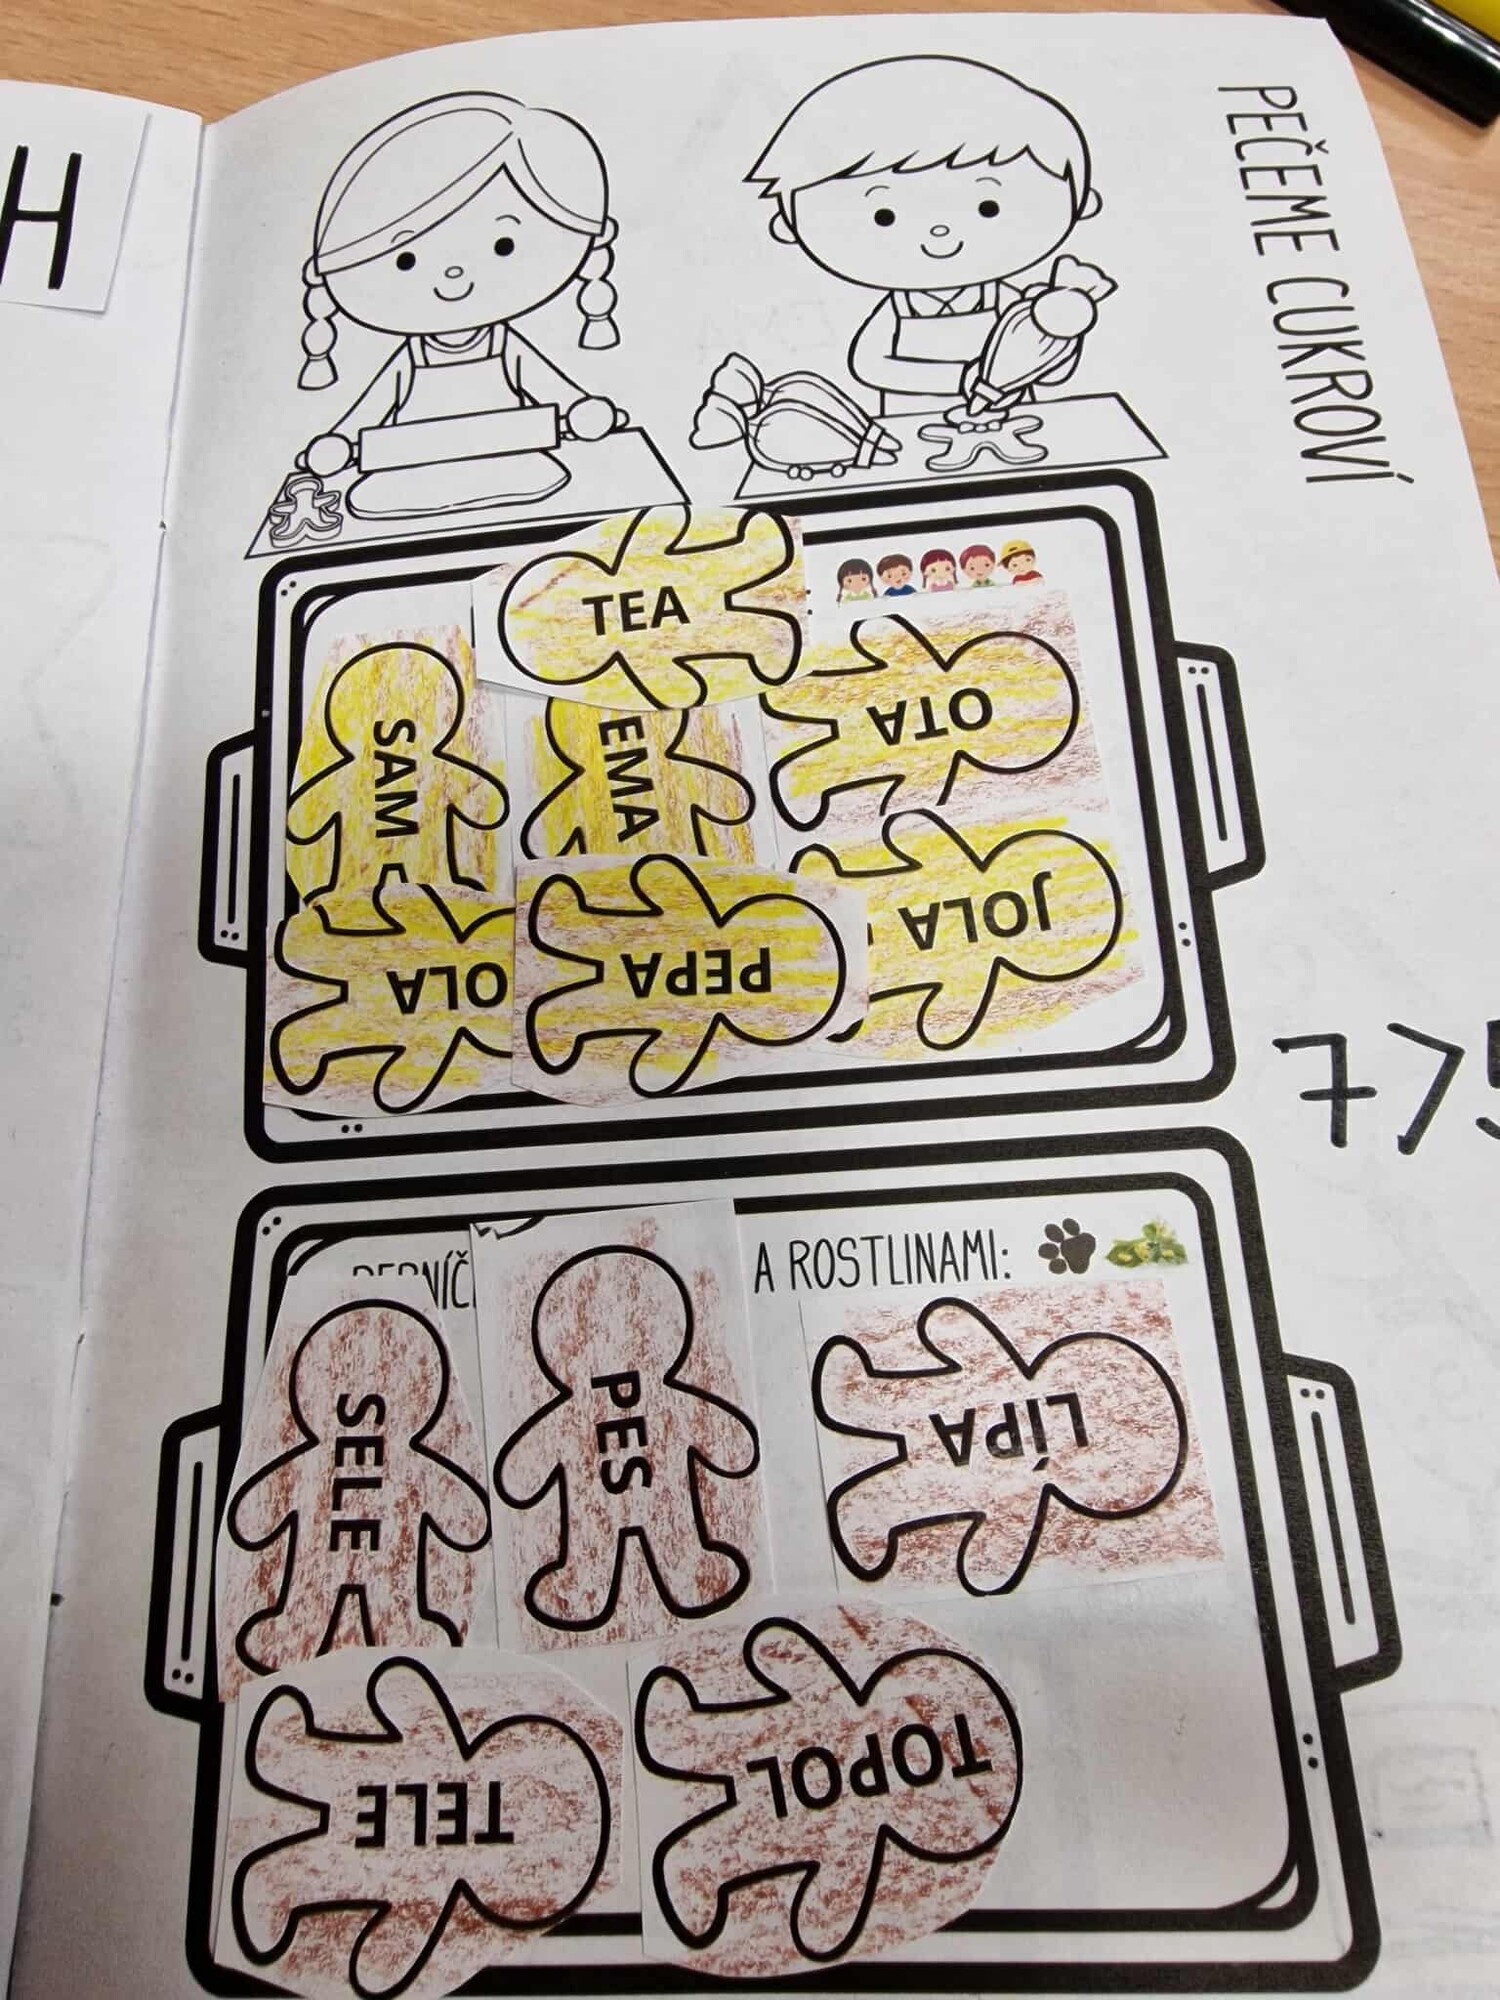 H
PEČEME CUKROVÍ
TEA
SAM
EMA
OTA
OLA
PEPA
JOLA
7>5
A ROSTLINAMI:
SELE
PES
LÍPA
TELE
TOPOL